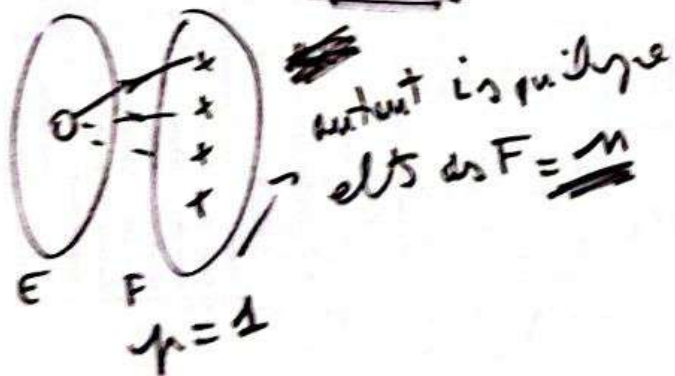 autant qu'il y a
elts ds F = n
E F
p = 1